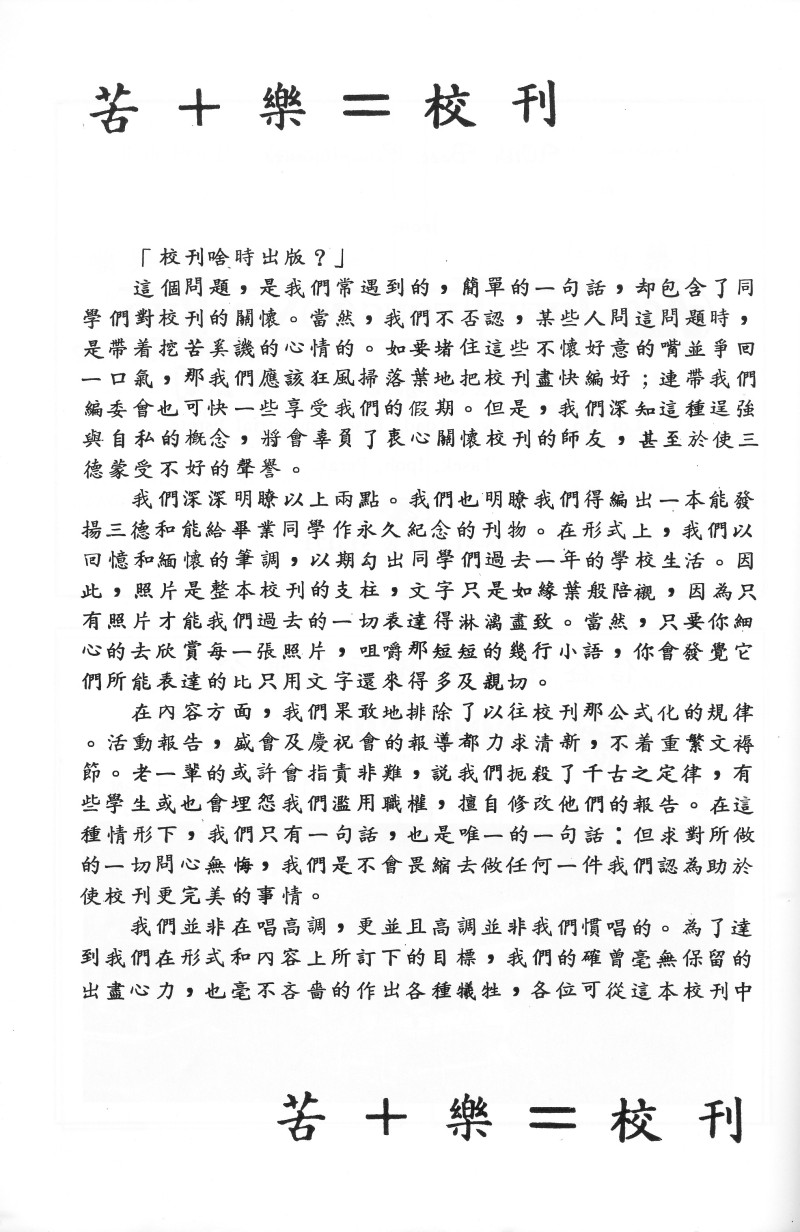 苦＋樂＝校刊
「校刊啥時出版？」
這個問題，是我們常遇到的，簡單的一句話，却包含了同
學們對校刊的關懷。當然，我們不否認，某些人問這問題時，
是帶着挖苦奚譏的心情的。如要堵住這些不懷好意的嘴並爭回
一口氣，那我們應該狂風掃落葉地把校刊盡快編好；連帶我們
編委會也可快一些享受我們的假期。但是，我們深知這種逞強
與自私的概念，將會辜負了衷心關懷校刊的師友，甚至於使三
德蒙受不好的聲譽。
我們深深明瞭以上兩點。我們也明瞭我們得編出一本能發
揚三德和能給畢業同學作永久紀念的刊物。在形式上，我們以
回憶和緬懷的筆調，以期勾出同學們過去一年的學校生活。因
此，照片是整本校刊的支柱，文字只是如緣葉般陪襯，因為只
有照片才能我們過去的一切表達得淋漓盡致。當然，只要你細
心的去欣賞每一張照片，咀嚼那短短的幾行小語，你會發覺它
們所能表達的比只用文字還來得多及親切。
在內容方面，我們果敢地排除了以往校刊那公式化的規律
。活動報告，盛會及慶祝會的報導都力求清新，不着重繁文褥
節。老一輩的或許會指責非難，説我們扼殺了千古之定律，有
些學生或也會埋怨我們濫用職權，擅自修改他們的報告。在這
種情形下，我們只有一句話，也是唯一的一句話：但求對所做
的一切問心無悔，我們是不會畏縮去做任何一件我們認為助於
使校刊更完美的事情。
我們並非在唱高調，更並且高調並非我們慣唱的。為了達
到我們在形式和內容上所訂下的目標，我們的確曾毫無保留的
出盡心力，也毫不吝嗇的作出各種犧牲，各位可從這本校刊中
苦＋樂＝校刊